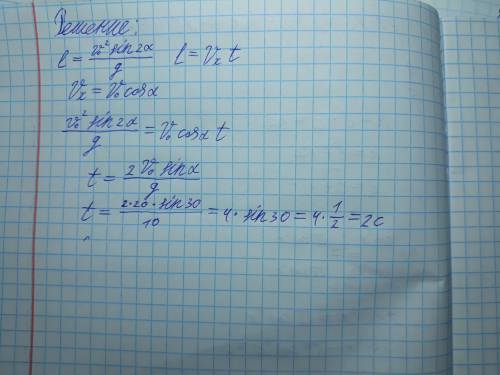 Решение:
l = v₀² sin2α / g   l = vₓ t
vₓ = v₀ cosα
v₀² sin2α / g = v₀ cosα t
t = 2 v₀ sinα / g
t = 2·20·sin30 / 10 = 4·sin30 = 4·1/2 = 2с